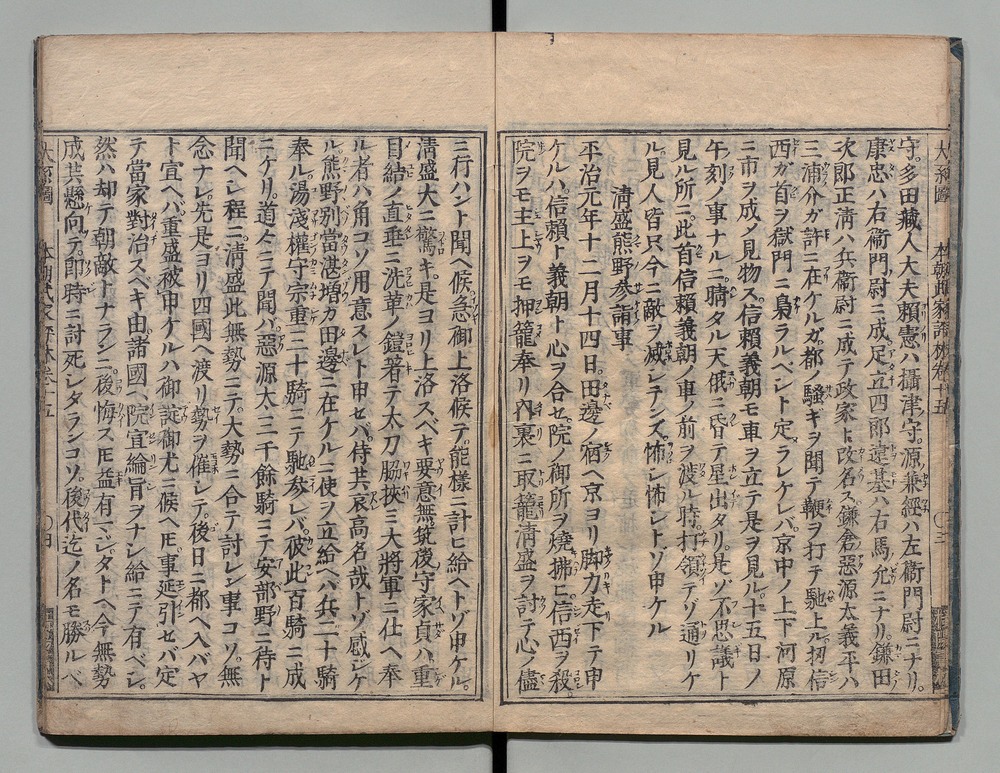 守。多田藏人大夫頼憲ハ攝津ノ守。源兼經ハ左衞門尉ニナリ。
康忠ハ右衞門ノ尉ニ成。足立四郎遠基ハ右馬允ニナリ。鎌田
次郎正清ハ兵衞尉ニ成テ政家ト改名ス鎌倉惡源太義平ハ
三浦分ガ許ニ在ケルガ。都ノ騷キヲ聞テ鞭ヲ打テ馳上ル扨信
西ガ首ヲ獄門ニ梟ラルベシト定ラレケレバ。京中ノ上下河原
ニ市ヲ成メ見物ス。信賴義朝モ車ヲ立テ是ヲ見ル。十五日ノ
午刻ノ事ナルニ晴タル天俄ニ昏テ星出タリ。是ゾ不思議ト
見ル所ニ。此首信賴義朝ノ車ノ前ヲ渡ル時。打領テゾ通リケ
ル見人皆只今ニ敵ヲ滅シテンズ。怖シ怖シトゾ申ケル
清盛熊野參詣事
平治元年十二月十四日。田邊ノ宿ヘ京ヨリ脚力走下テ申
ケルハ信賴ト義朝ト心ヲ合セ。院ノ御所ヲ燒拂ヒ信西ヲ殺。
院ヲモ主上ヲモ押籠奉リ內裏ニ取籠清盛ヲ討テ心ノ儘
ニ行ハント聞ヘ候。急御上洛候テ。能樣ニ計ヒ給ヘトゾ申ケル。
清盛大ニ驚キ。是ヨリ上洛スベキ要意無。筑後守家貞ハ重
目結ノ直垂ニ洗革ノ鎧著テ太刀脇挾ミ大將軍ニ仕ヘ奉
ル者ハ角コソ用意スレト申セバ。侍共哀高名哉トゾ感シケ
ル熊野別當湛增ガ田邊ニ在ケルニ使ヲ立給ヘハ兵二十騎
奉ル。湯淺權守宗重三十騎ニテ馳參レバ。彼此百騎ニ成
ニケリ。道々ニテ聞ハ。惡源太三千餘騎ニテ安部野ニ待ト
聞ヘシ程ニ。清盛此無勢ニテ。大勢ニ合テ討レン事コソ。無
念ナレ。先是ヨリ四國ヘ渡リ勢ヲ催シテ。後日ニ都ヘ入バヤ
ト宣ヘバ。重盛被申ケルハ御諚御尤ニ候ヘ𪜈。事延引セバ定
テ當家對治スベキ由諸國ヘ。院宣綸旨ヲナシ給ニテ有ベシ。
然ハ却テ朝敵トナランニ。後悔ス𪜈益有マジ。タトヘ今無勢
成共懸向テ。即時ニ討死シタランコソ。後代迄ノ名モ勝ルベ